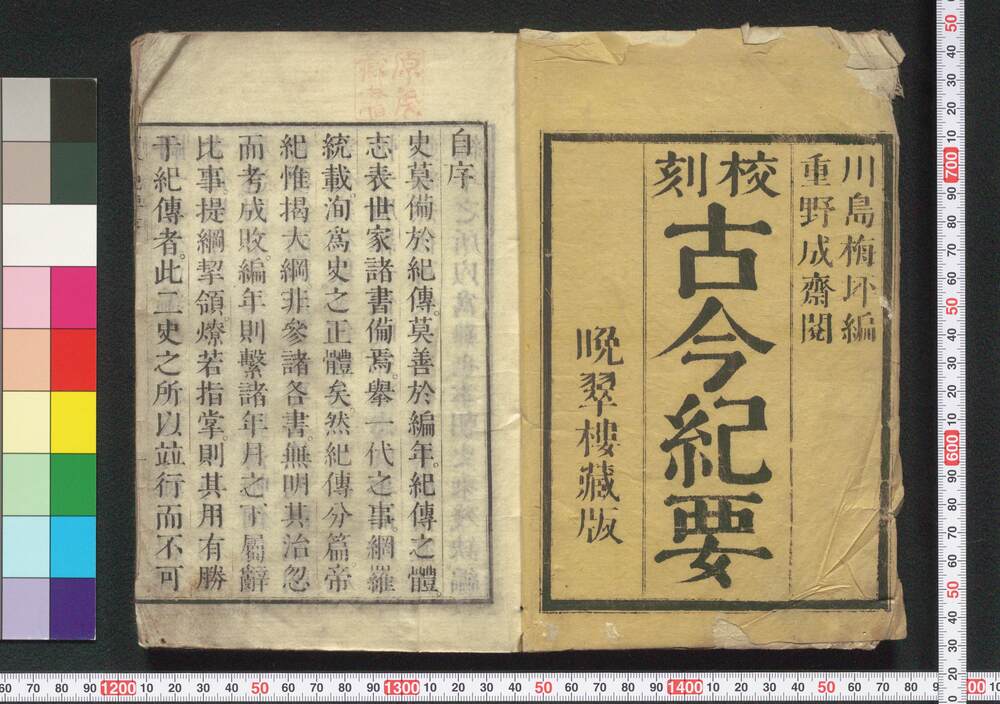 川島梅坪編
重野成齋閱
校刻
古今紀要
晩翠樓藏版
自序
史莫備於紀傳。莫善於編年。紀傳之體
志表世家諸書備焉。擧一代之事。網羅
統載。洵爲史之正體矣。然紀傳分篇。帝
紀惟揭大綱。非參諸各書。無明其治忽
而考成敗。編年則繫諸年月之下。屬辭
比事。提綱挈領。燎若指掌。則其用有勝
于紀傳者。此二史之所以竝行而不可